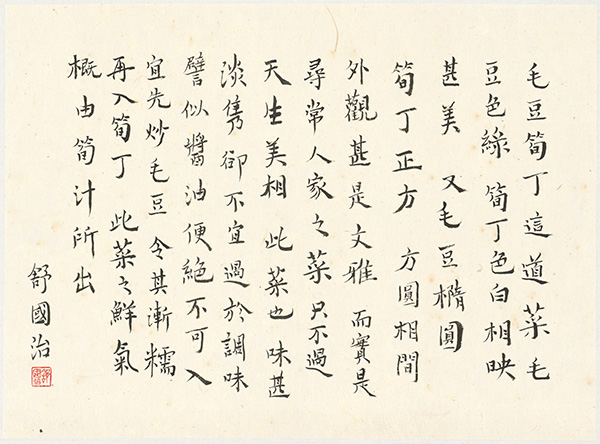 毛豆筍丁這道菜毛
豆色綠 筍丁色白相映
甚美 又毛豆橢圓
筍丁正方 方圓相間
外觀甚是文雅 而實是
尋常人家之菜 只不過
天生美相 此菜也味甚
淡雋 卻不宜過於調味
譬似醬油便絕不可入
宜先炒毛豆 令其漸糯
再入筍丁 此菜之鮮氣
概由筍汁所出
舒國治